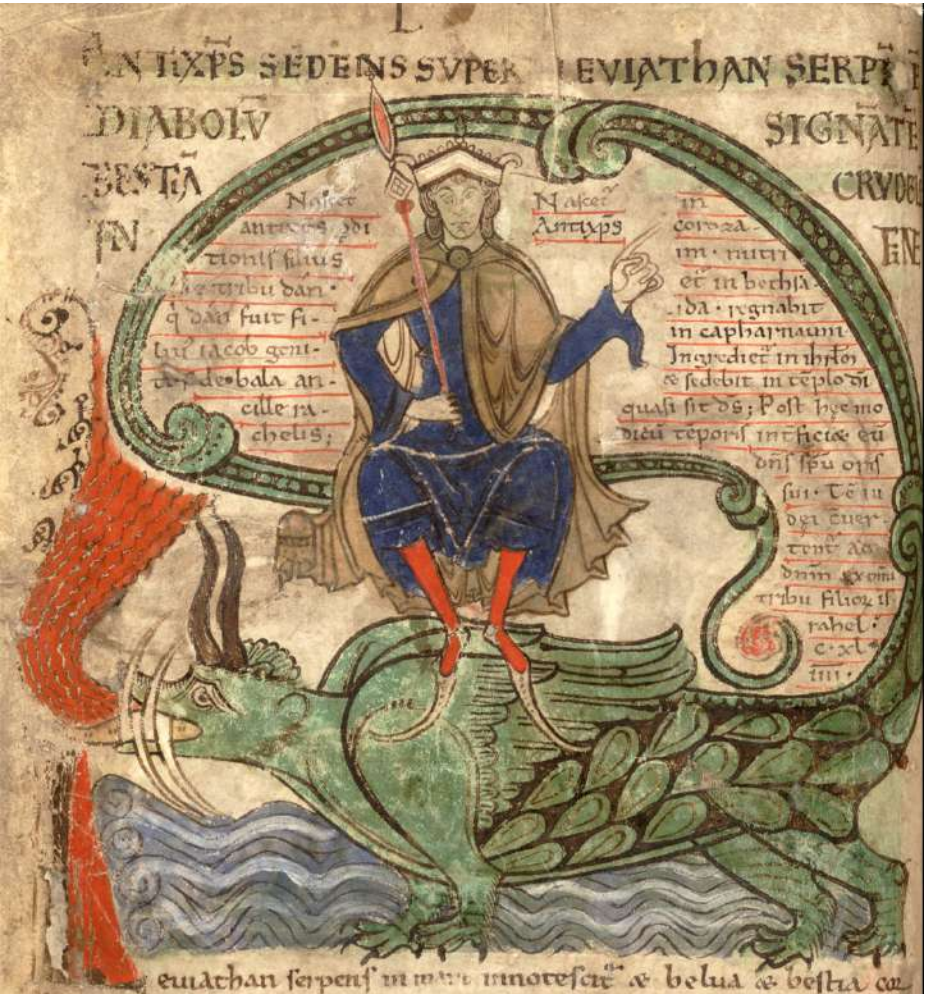 L
ANTIXP̄S SEDENS SVPER LEVIATHAN SERPĒ
DIABOLV̄ SIGNĀTĒ
BESTIĀ CRVDEL
IN FINE
Nascet
antixp̄s p̄di
tionis filius
de tribu dan·
q̄ dan fuit fi-
lius iacob geni-
tus de bala an-
cille ra-
chelis;
Nascet̄
Antixp̄s
in
coroza-
im· nutri
et̄ in bethsa-
ida· regnabit
in capharnaum·
Ingrediet̄ in ihrl̄m
& sedebit in tēplo dī
quasi sit ds̄; Post hęc mo
dicū tēporis int̄ficiæ eū
dn̄s sp̄u oris
sui· Tc̄ iu
dei c̄uer-
tent̄ ad
dnm̄
tribu filioꝝ is
rahel·
c·xl·
iiii·
euiathan serpens in mari innotescit̄ & belua & bestia